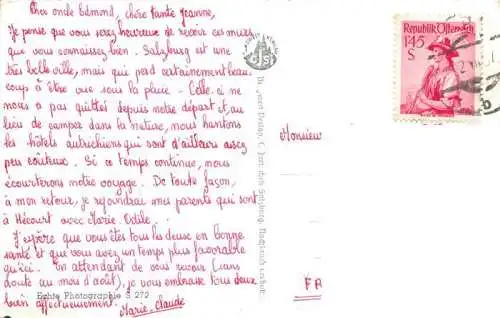 Cher oncle Edmond, chère tante Jeanne,
Je pense que vous serez heureux de recevoir ces vues
que vous connaissez bien. Salzburg est une
très belle ville, mais qui perd certainement beau-
coup à être vue sous la pluie - Celle-ci ne
nous a pas quittés depuis notre départ et, au
lieu de camper dans la nature, nous hantons
les hôtels autrichiens qui sont d'ailleurs assez
peu coûteux. Si ce temps continue, nous
écourterons notre voyage. De toute façon,
à mon retour, je rejoindrai mes parents qui sont
à Hécourt avec Marie-Odile.
J'espère que vous êtes tous les deux en bonne
santé et que vous avez un temps plus favorable
qu'ici. En attendant de vous revoir (sans
doute au mois d'août), je vous embrasse tous deux
bien affectueusement.
Marie-Claude
Echte Photographie S 272
Republik Österreich
1.45
S
Monsieur
FR